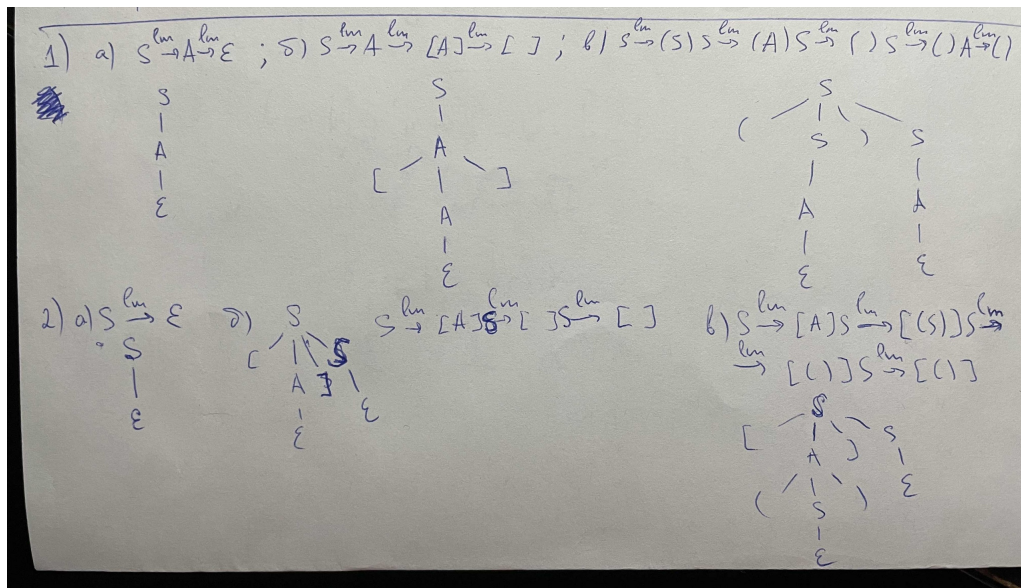 1) a) S lm→ A lm→ ε ; б) S lm→ A lm→ [A] lm→ [ ] ; в) S lm→ (S)S lm→ (A)S lm→ ()S lm→ ()A lm→ ()
S
A
ε
S
[ A ]
A
ε
S
( S ) S
A A
ε ε
2) a) S lm→ ε
S
ε
б) S lm→ [A]S lm→ [ ]S lm→ [ ]
S
[ A ] S
ε ε
в) S lm→ [A]S lm→ [(S)]S lm→
lm→ [()]S lm→ [()]
S
[ A ] S
( S ) ε
ε